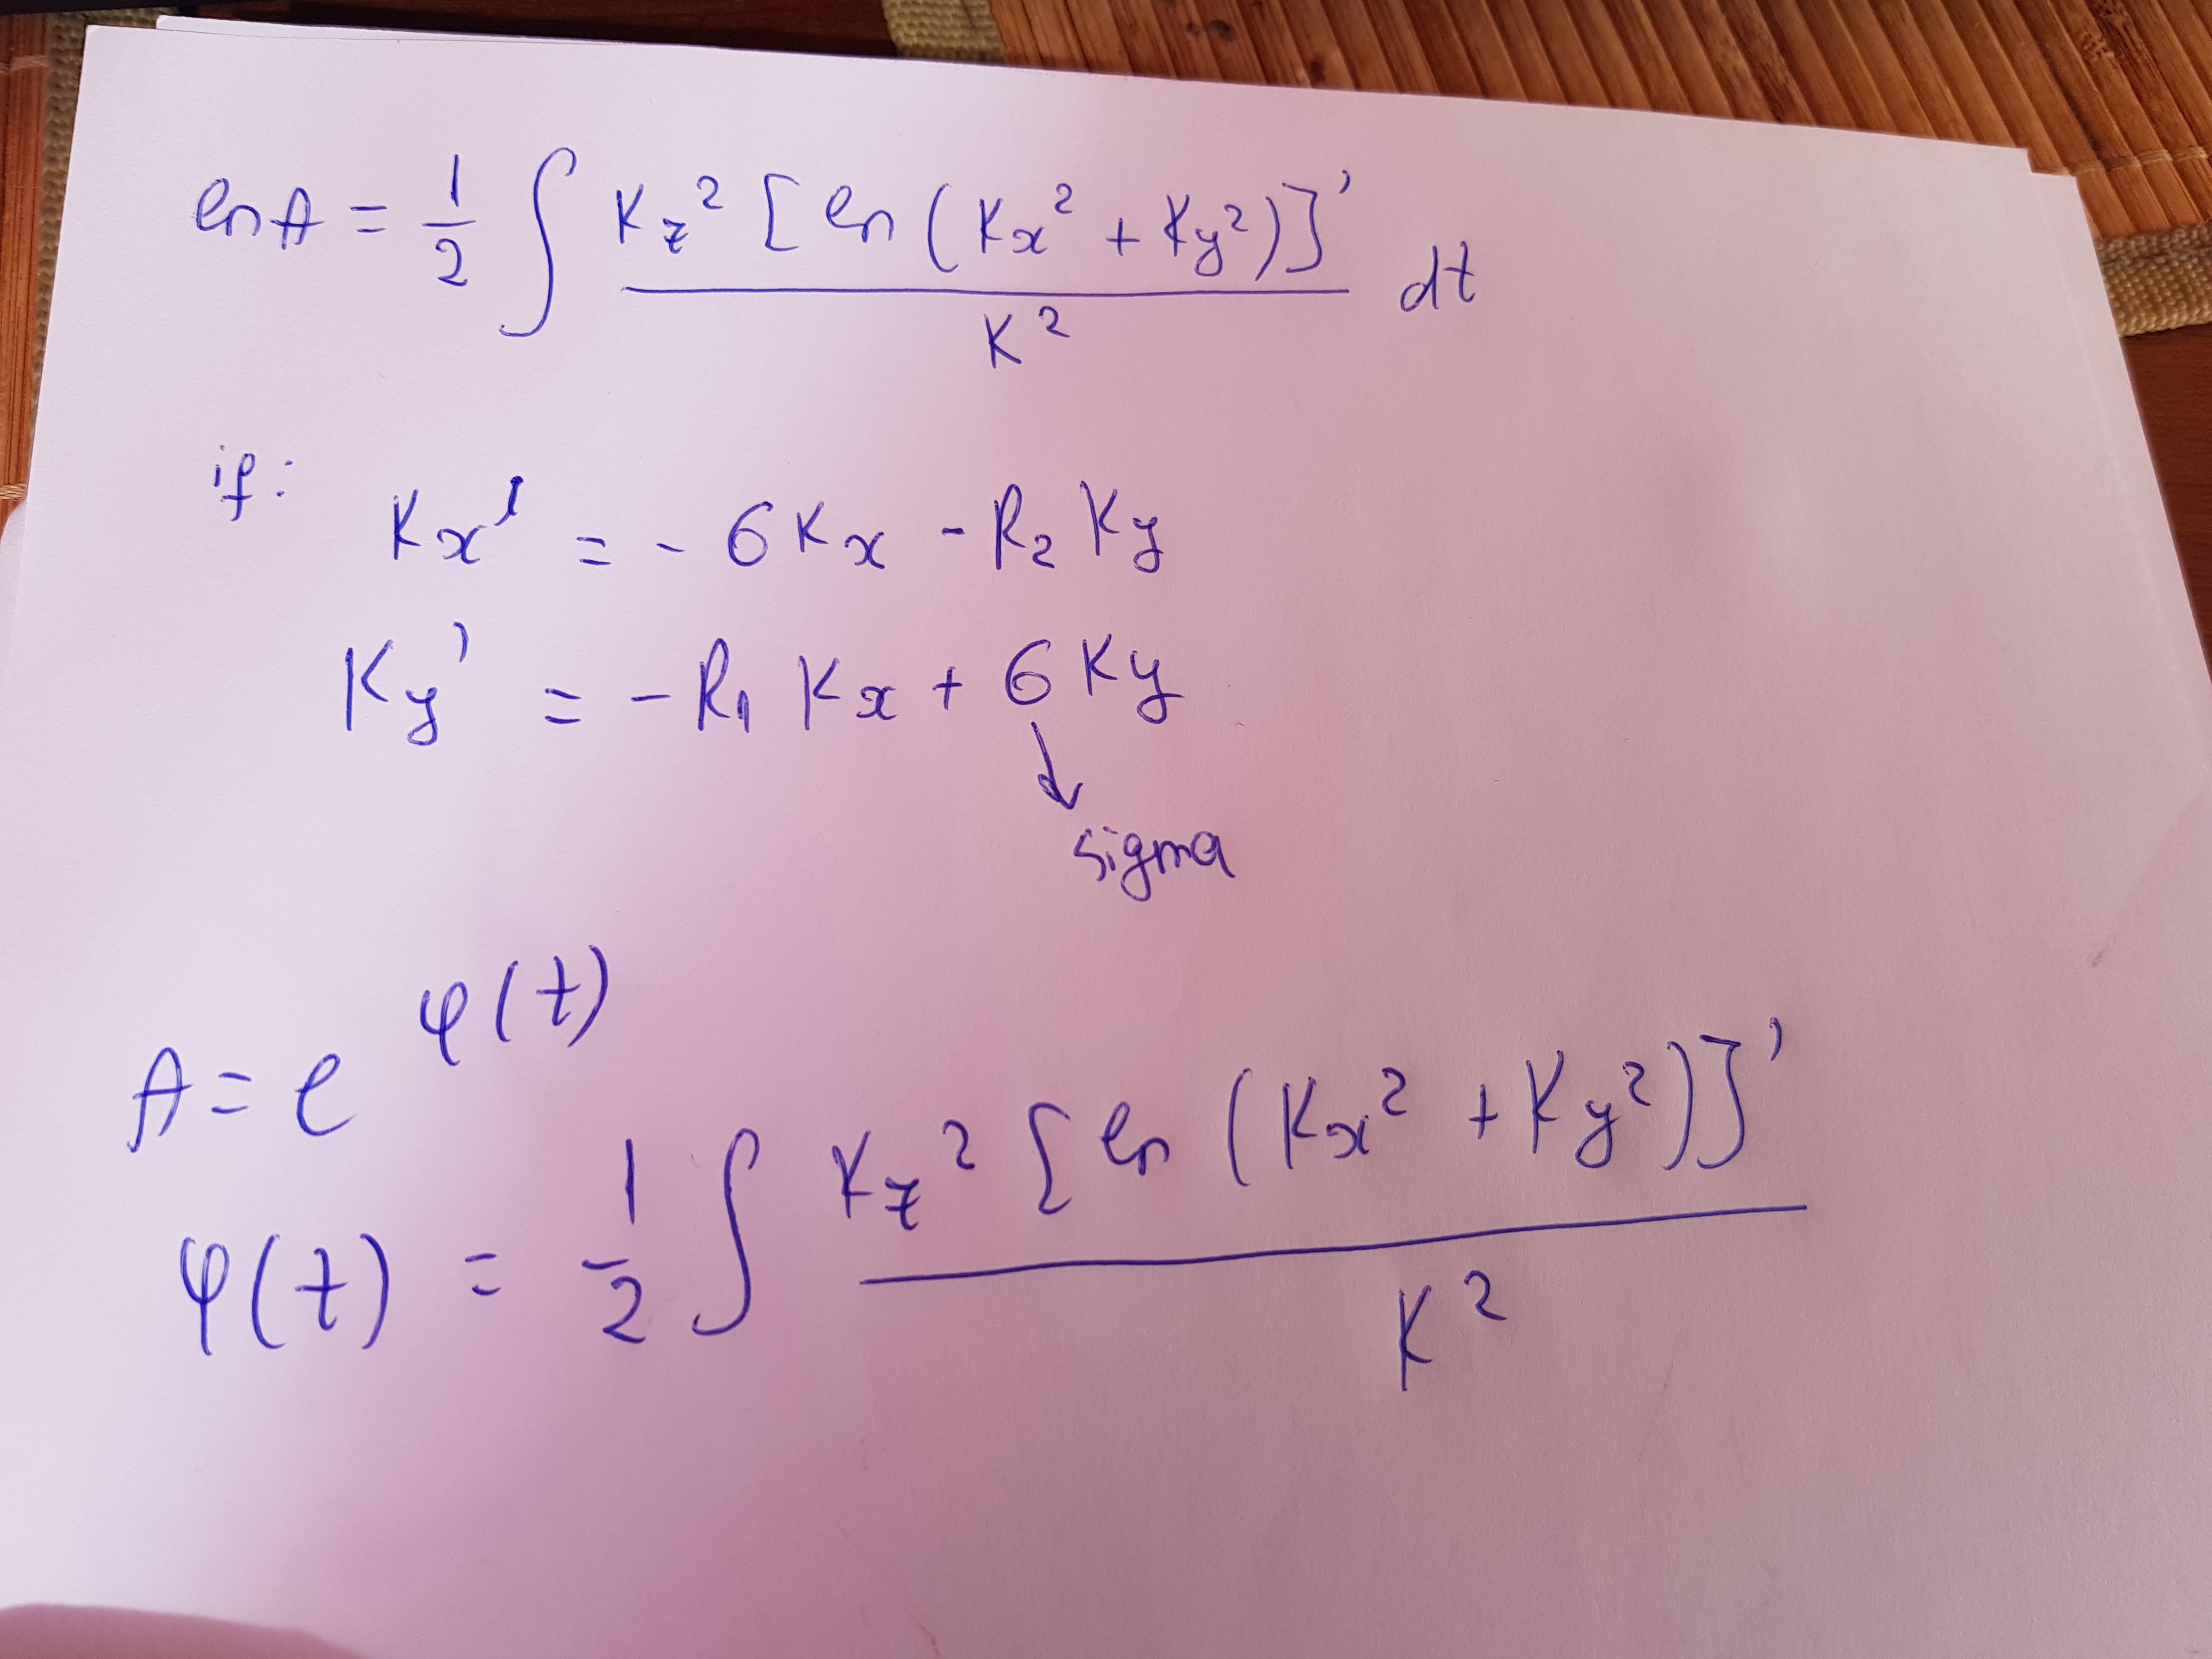 ln A = 1/2 ∫ Kz² [ln (Kx² + Ky²)]' / K² dt
if:
Kx' = - σ Kx - R₂ Ky
Ky' = - R₁ Kx + σ Ky
↓
sigma
A = e^φ(t)
φ(t) = 1/2 ∫ Kz² [ln (Kx² + Ky²)]' / K²